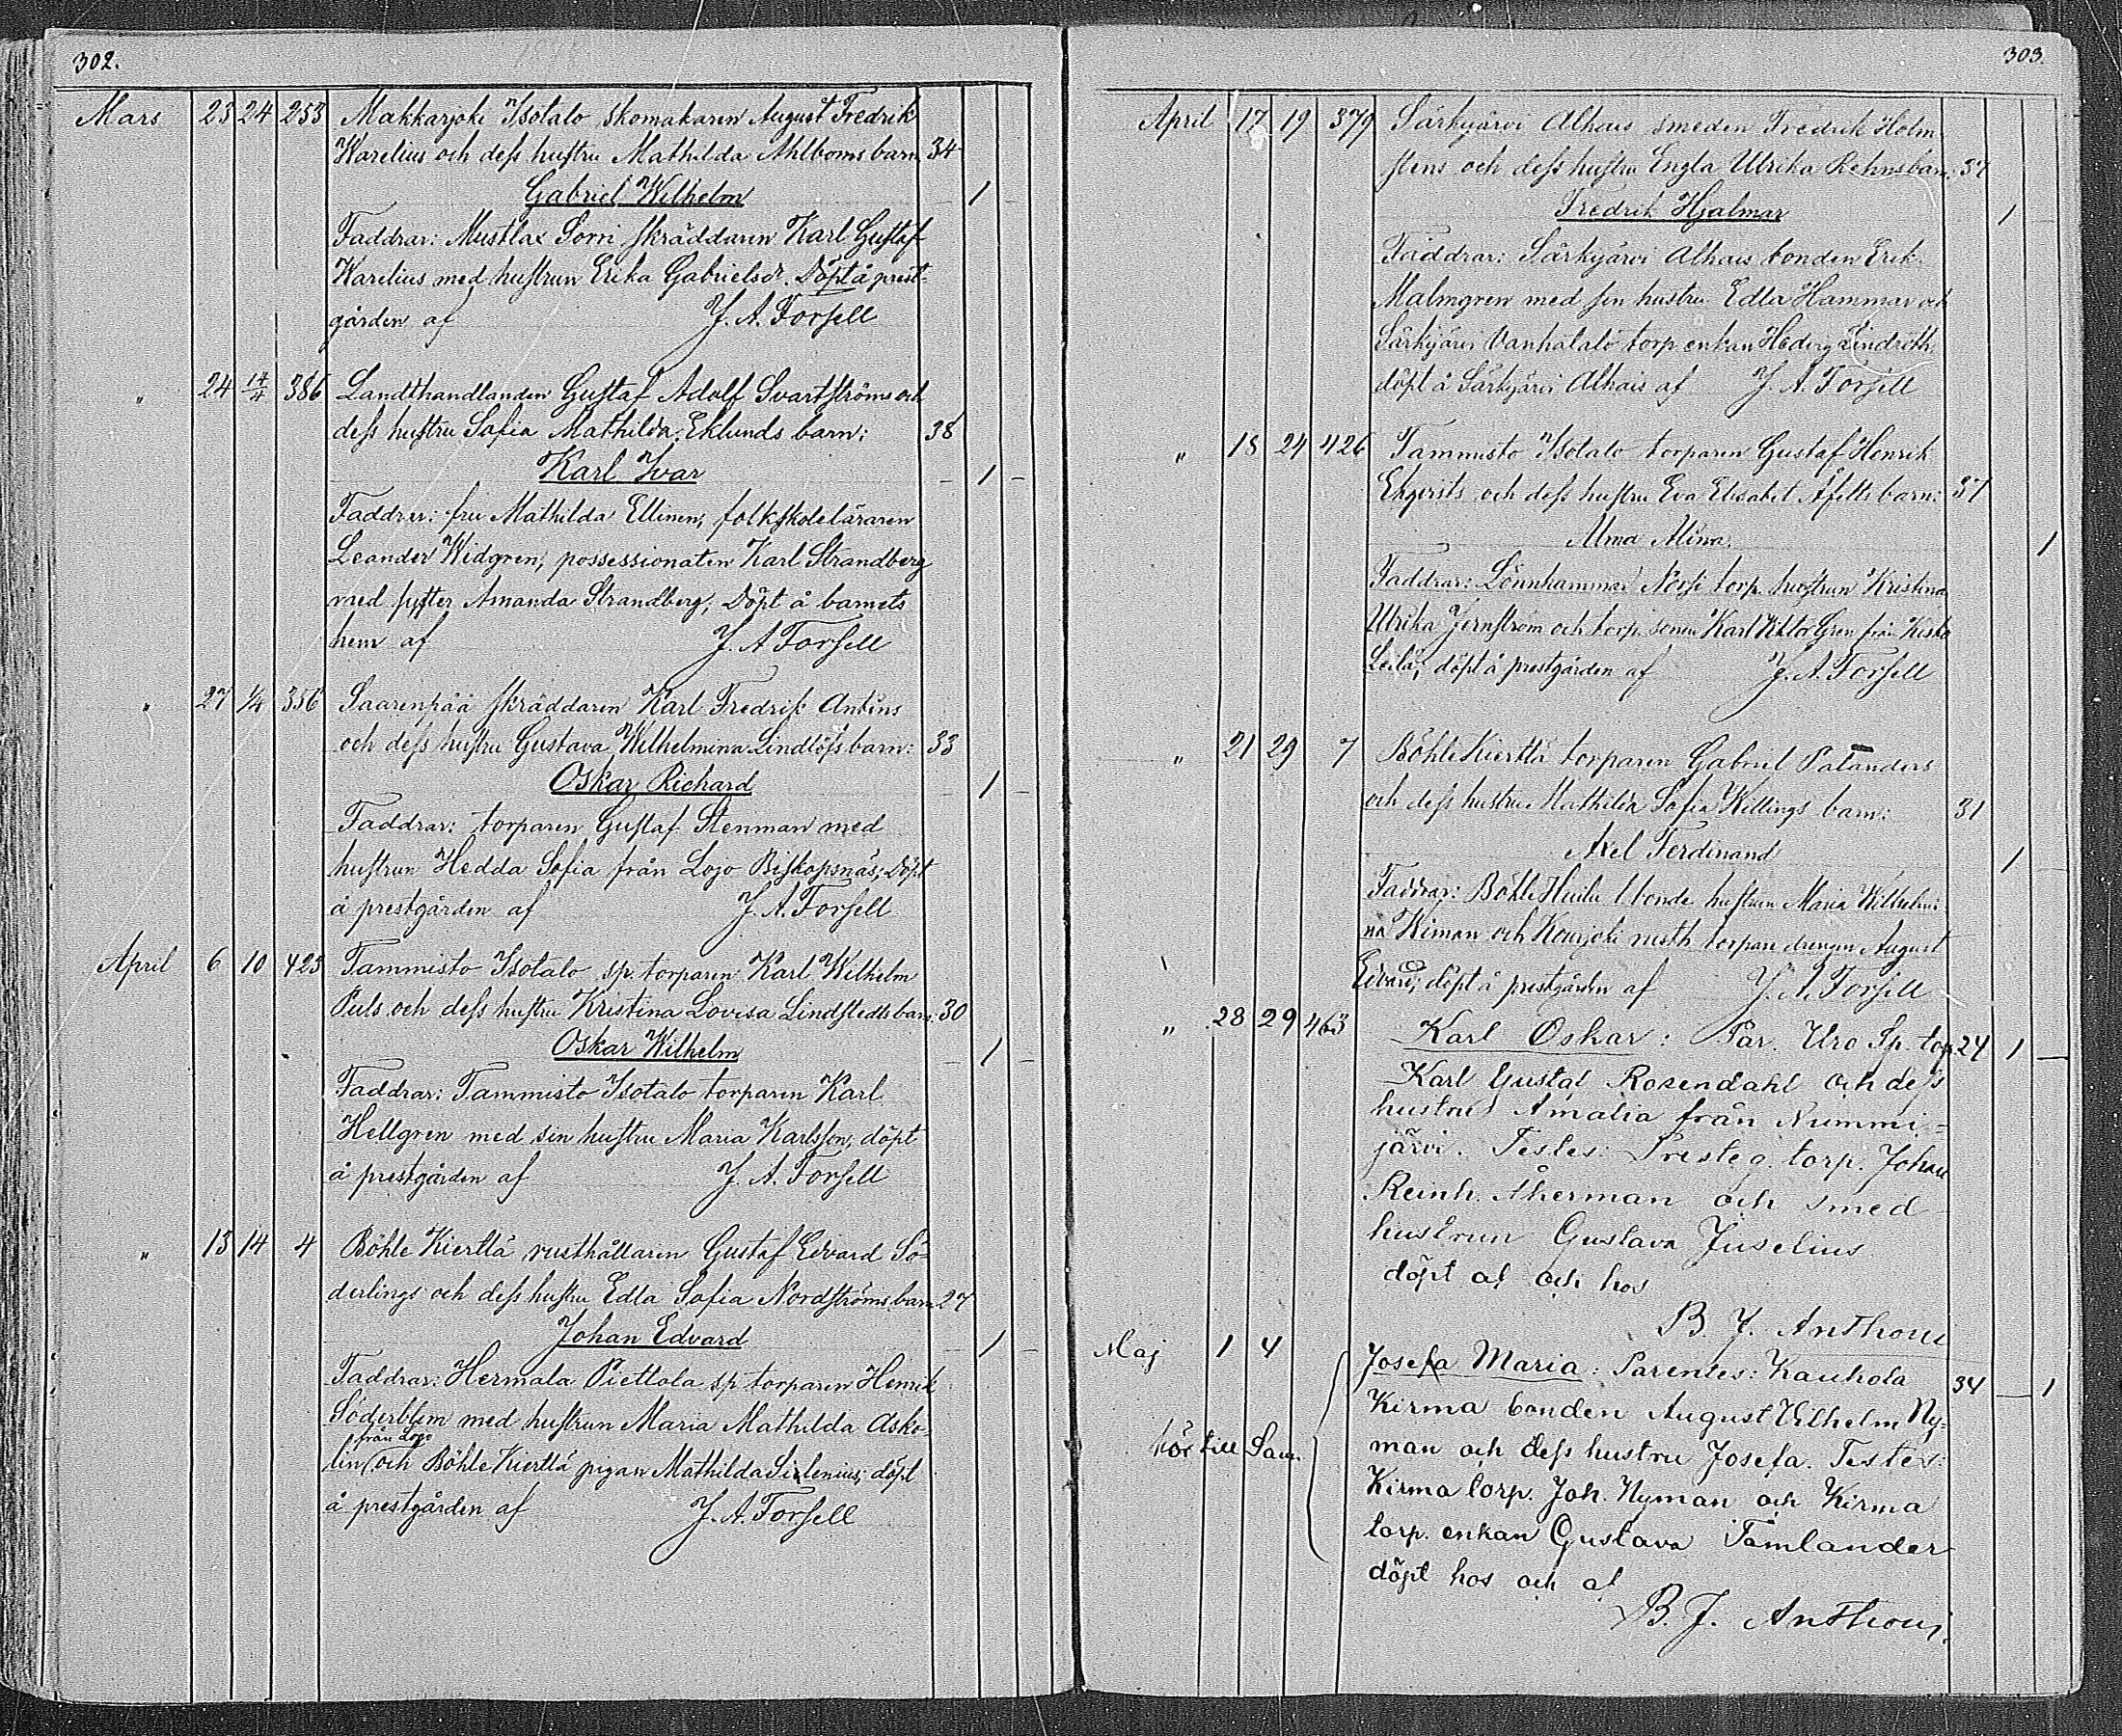 302.
Mars 23 24 253 Makkarjoki Isotalo skomakaren August Fredrik
Karelius och dess hustru Mathilda Ahlboms barn 34
Gabriel Wilhelm 1
Faddrar: Mustlax Sorri skräddaren Karl Gustaf
Karelius med hustrun Erika Gabrielsdr. Döpt å prest-
gården af J. A. Forsell
" 24 14/4 386 Landthandlanden Gustaf Adolf Svartströms och
dess hustru Sofia Mathilda Eklunds barn: 38
Karl Ivar 1
Faddrar: fru Mathilda Ellinen, folkskoleläraren
Leander Widgren, possessionaten Karl Strandberg
med syster Amanda Strandberg; Döpt å barnets
hem af J. A Forsell
" 27 1/4 356 Saarenpää skräddaren Karl Fredrik Antins
och dess hustru Gustava Wilhelmina Lindlöfs barn: 33
Oskar Richard 1
Faddrar: torparen Gustaf Stenman med
hustrun Hedda Sofia från Lojo Biskopsnäs; Döpt
å prestgården af J. A. Forsell
April 6 10 425 Tammisto Isotalo sp. torparen Karl Wilhelm
Puls och dess hustru Kristina Lovisa Lindstedts barn: 30
Oskar Wilhelm 1
Faddrar: Tammisto Isotalo torparen Karl
Hellgren med sin hustru Maria Karlsson, döpt
å prestgården af J. A. Forsell
" 13 14 4 Böhle Kierttä rusthållaren Gustaf Edvard Sö-
derlings och dess hustru Edla Sofia Nordströms barn 27
Johan Edvard 1
Faddrar: Hermala Piettola sp torparen Henrik
Söderblom med hustrun Maria Mathilda Asko-
från Lojo
lin och Böhle Kierttä pigan Mathilda Sirlenius; döpt
å prestgården af J. A. Forsell
303.
April 17 19 379 Särkijärvi Alhais smeden Fredrik Holm
stens och dess hustru Engla Ulrika Rehns barn: 37
Fredrik Hjalmar 1
Faddrar: Särkijärvi Alhais bonden Erik
Malmgren med sin hustru Edla Hammar och
Särkijärvi Vanhatalo torp enkan Hedvig Lindroth
döpt å Särkijärvi Alhais af J. A. Forsell
" 18 24 426 Tammisto Isotalo torparen Gustaf Henrik
Ekqvists och dess hustru Eva Elisabet Åfelts barn: 37
Alma Alina. 1
Faddrar: Lönnhammar torp. hustrun Kristina
Ulrika Jernström och torp. sonen Karl Viktor Gren från Kisko
Leilä; döpt å prestgården af J. A. Forsell
" 21 29 7 Böhle Kierttä torparen Gabriel Palanders
och dess hustru Mathilda Sofia Killings barn: 31
Axel Ferdinand 1
Faddrar: Böhle bonde hustrun Maria Wilhelmi-
na Kiman och Kourjoki rusth torpare drengen August
Edvard; döpt å prestgården af J. A. Forsell
" 28 29 463 Karl Oskar: Par. Uro Sp. torp 24 1
Karl Gustaf Rosendahl och dess
hustru Amalia från Nummi-
järvi. Testes: Presteg. torp. Johan
Reinh. Åkerman och smed
hustrun Gustava Juselius
döpt af och hos
B. J. Anthoni
Maj 1 4 Josefa Maria: Parentes: Kauhola 34 1
Kirma bonden August Vilhelm Ny-
man och dess hustru Josefa. Testes:
hör till Sam.
Kirma torp. Joh. Nyman och Kirma
torp. enkan Gustava Tamlander
döpt hos och af
B. J. Anthoni.